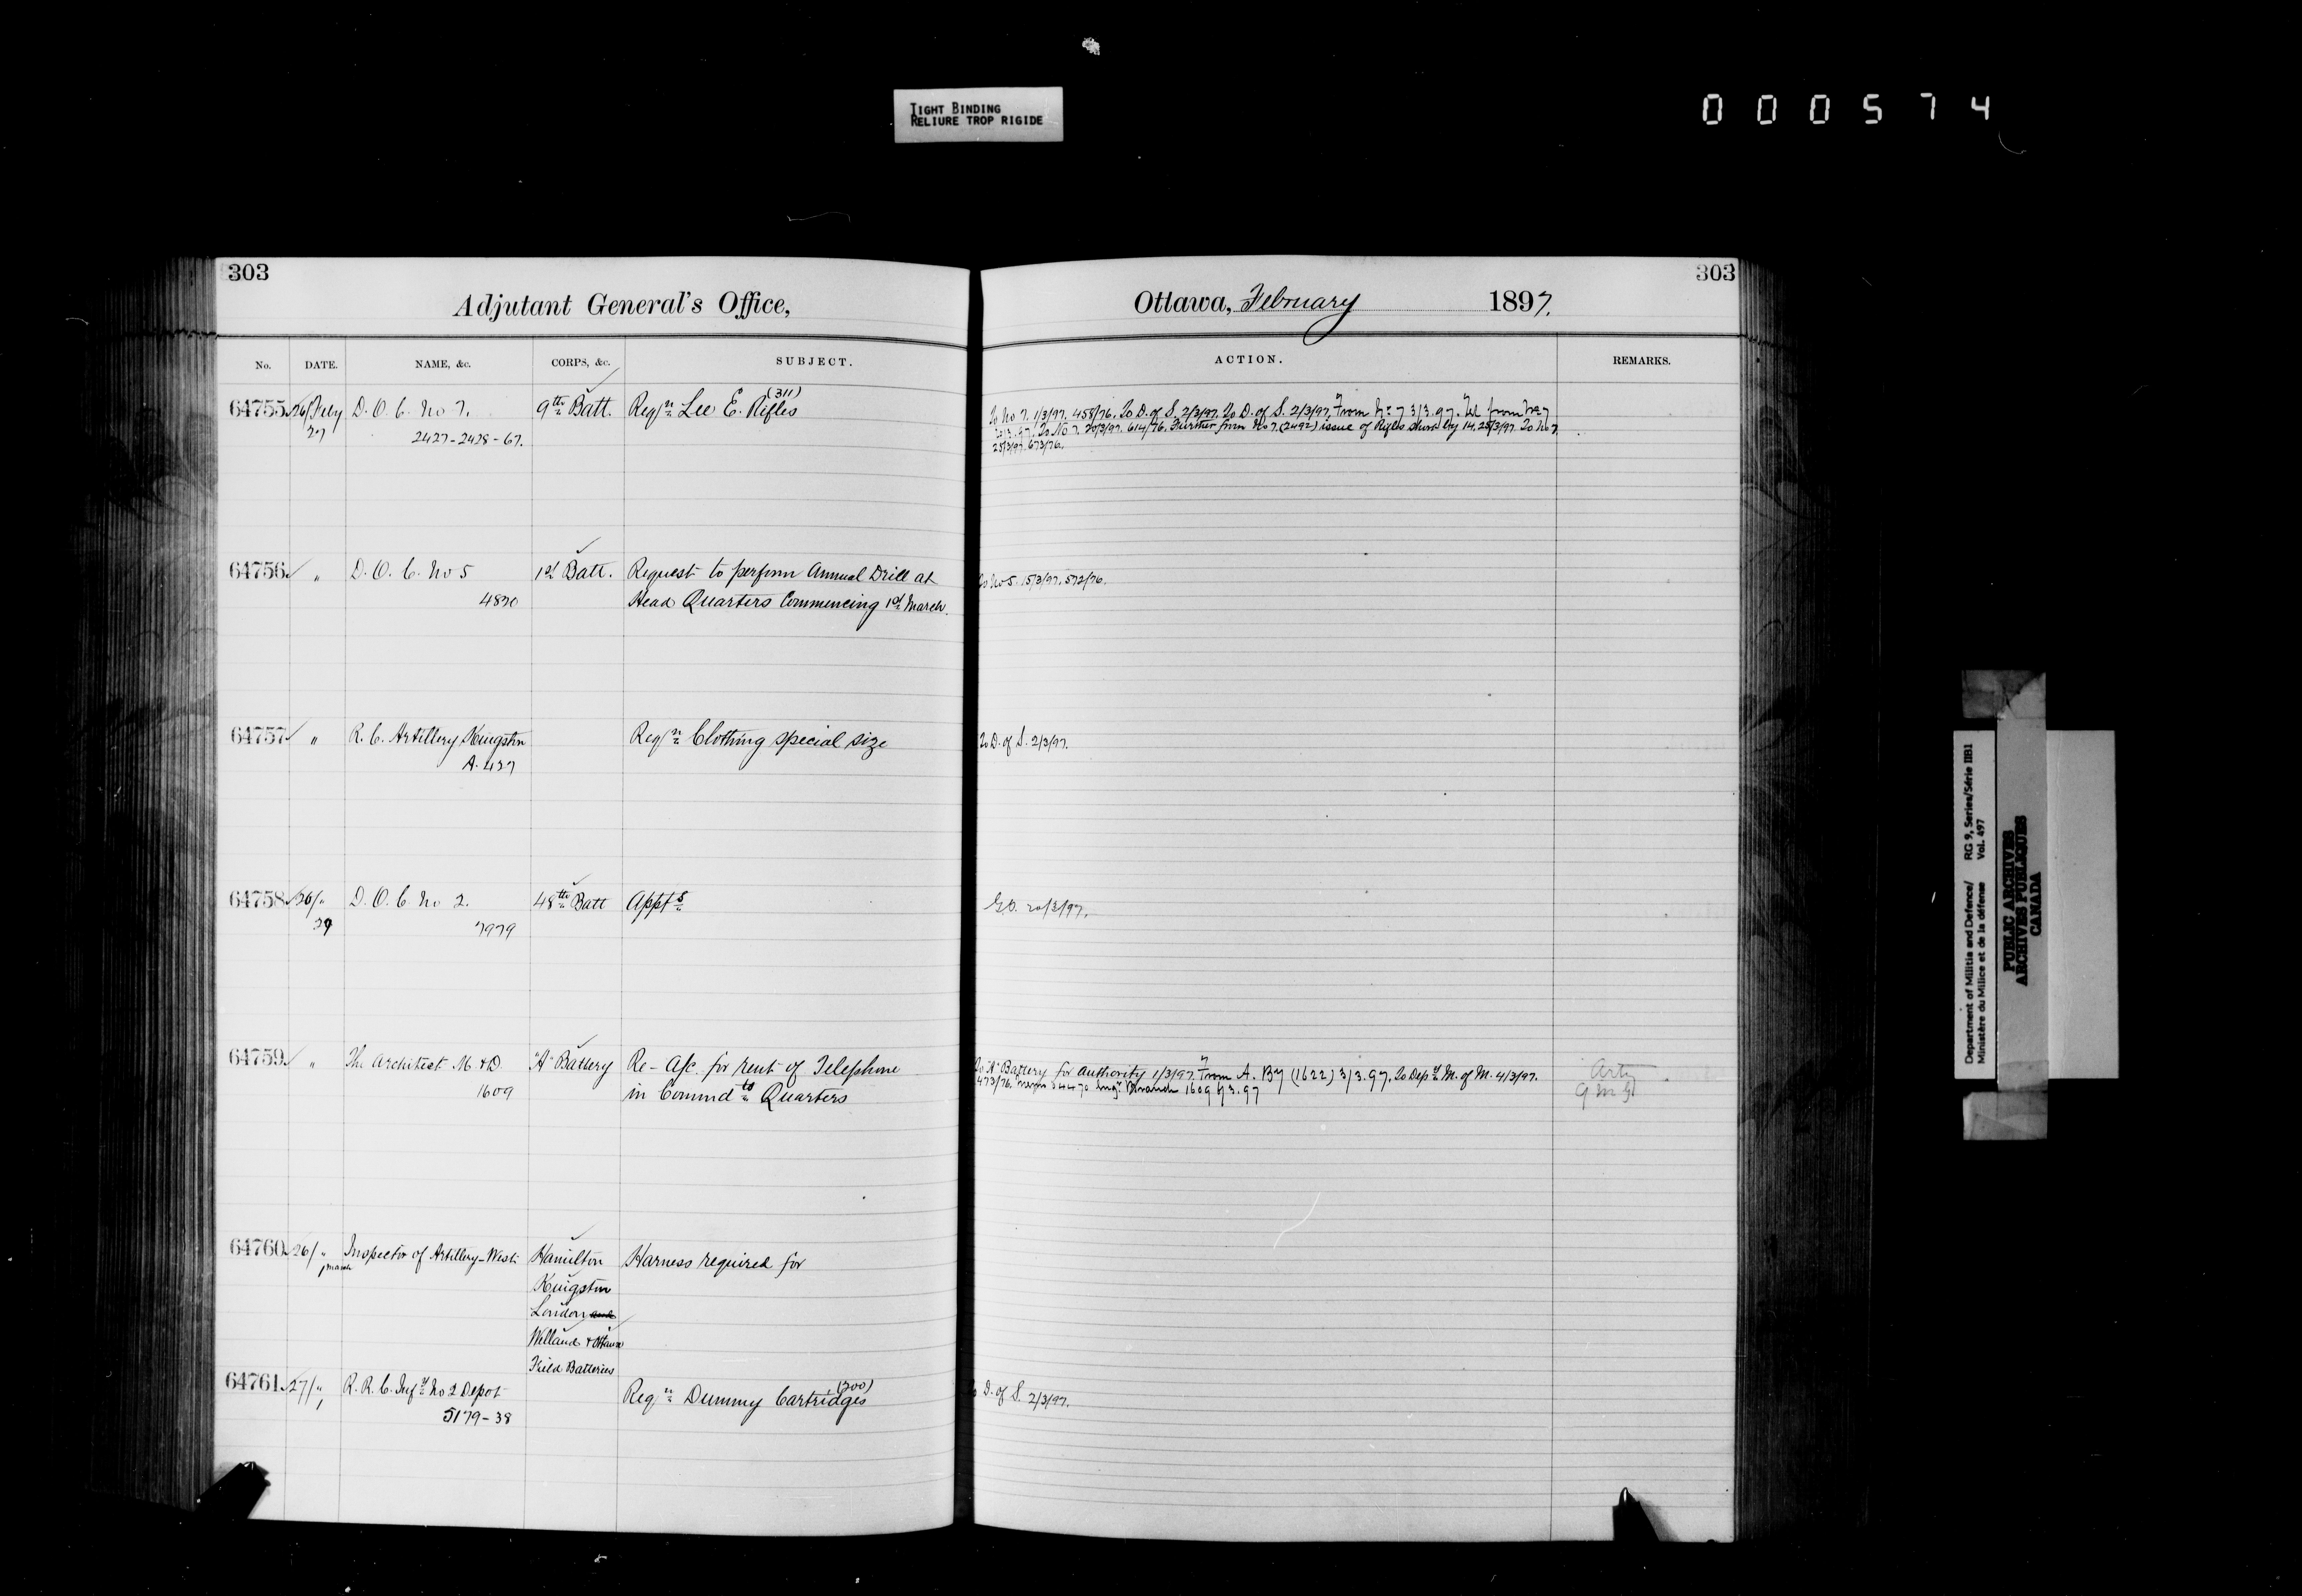 TIGHT BINDING
RELIURE TROP RIGIDE
000574
303
Adjutant General's Office,
Ottawa, February 1897.
303
No. DATE. NAME, &c. CORPS, &c. SUBJECT. ACTION. REMARKS.
64755 26/Feby D. O. C. No 7. 9th Batt. Reqn Lee E. Rifles (311)
27 2427-2428-67.
To No 7. 1/3/97. 458/76. To D. of S. 2/3/97. To D. of S. 2/3/97. From No 7 3/3.97. Tel from No 7
20/3.97. To No 7. 20/3/97. 614/76. Further from No 7. (2492) issue of Rifles 25/3/97 To No 7.
25/3/97. 673/76.
64756 " D. O. C. No 5 1st Batt. Request to perform Annual Drill at
4870 Head Quarters Commencing 1st March.
To No 5. 15/3/97. 572/76.
64757 " R. C. Artillery Kingston Reqn Clothing special size
A. 427
To D. of S. 2/3/97.
64758 26/" D. O. C. No 2. 48th Batt Appts
7979
G.O. 20/3/97.
64759 " The Architect M. & D. "A" Battery Re - A/c. for rent of Telephone
1609 in Commdts Quarters
To "A" Battery for authority 1/3/97. From A. By (1622) 3/3.97. To Dep M. of M. 4/3/97.
473/76. Branch 1609
Arty
QMG
64760 26/" Inspector of Artillery-West Hamilton Harness required for
1 March
Kingston
London and
Welland & Ottawa
Field Batteries
64761 27/" R. R. C. Infy No 2 Depot Reqn Dummy Cartridges (200)
5179-38
To D. of S. 2/3/97.
Department of Militia and Defence/ RG 9, Series/Série IIB1
Ministère du Milice et de la défense Vol. 497
PUBLIC ARCHIVES
ARCHIVES PUBLIQUES
CANADA